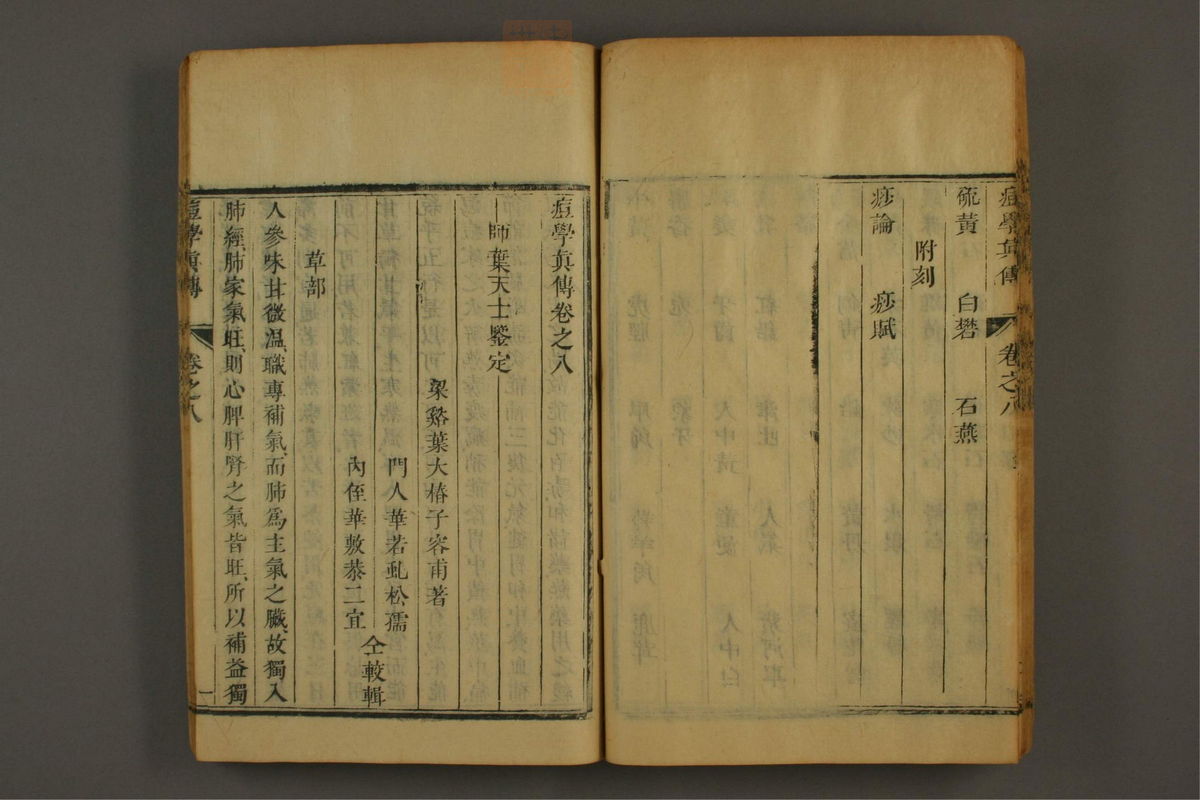 痘學眞傳 卷之八
硫黃 白礬 石燕
附刻
痧論 痧賦
痘學眞傳卷之八
師葉天士鑒定
梁谿葉大椿子容甫著
門人華若虬松孺
內侄華敷恭二宜
仝較輯
草部
人參味甘微溫、職專補氣、而肺爲主氣之臟、故獨入
肺經、肺家氣旺、則心脾肝腎之氣皆旺、所以補益獨
痘學眞傳 卷之八 一